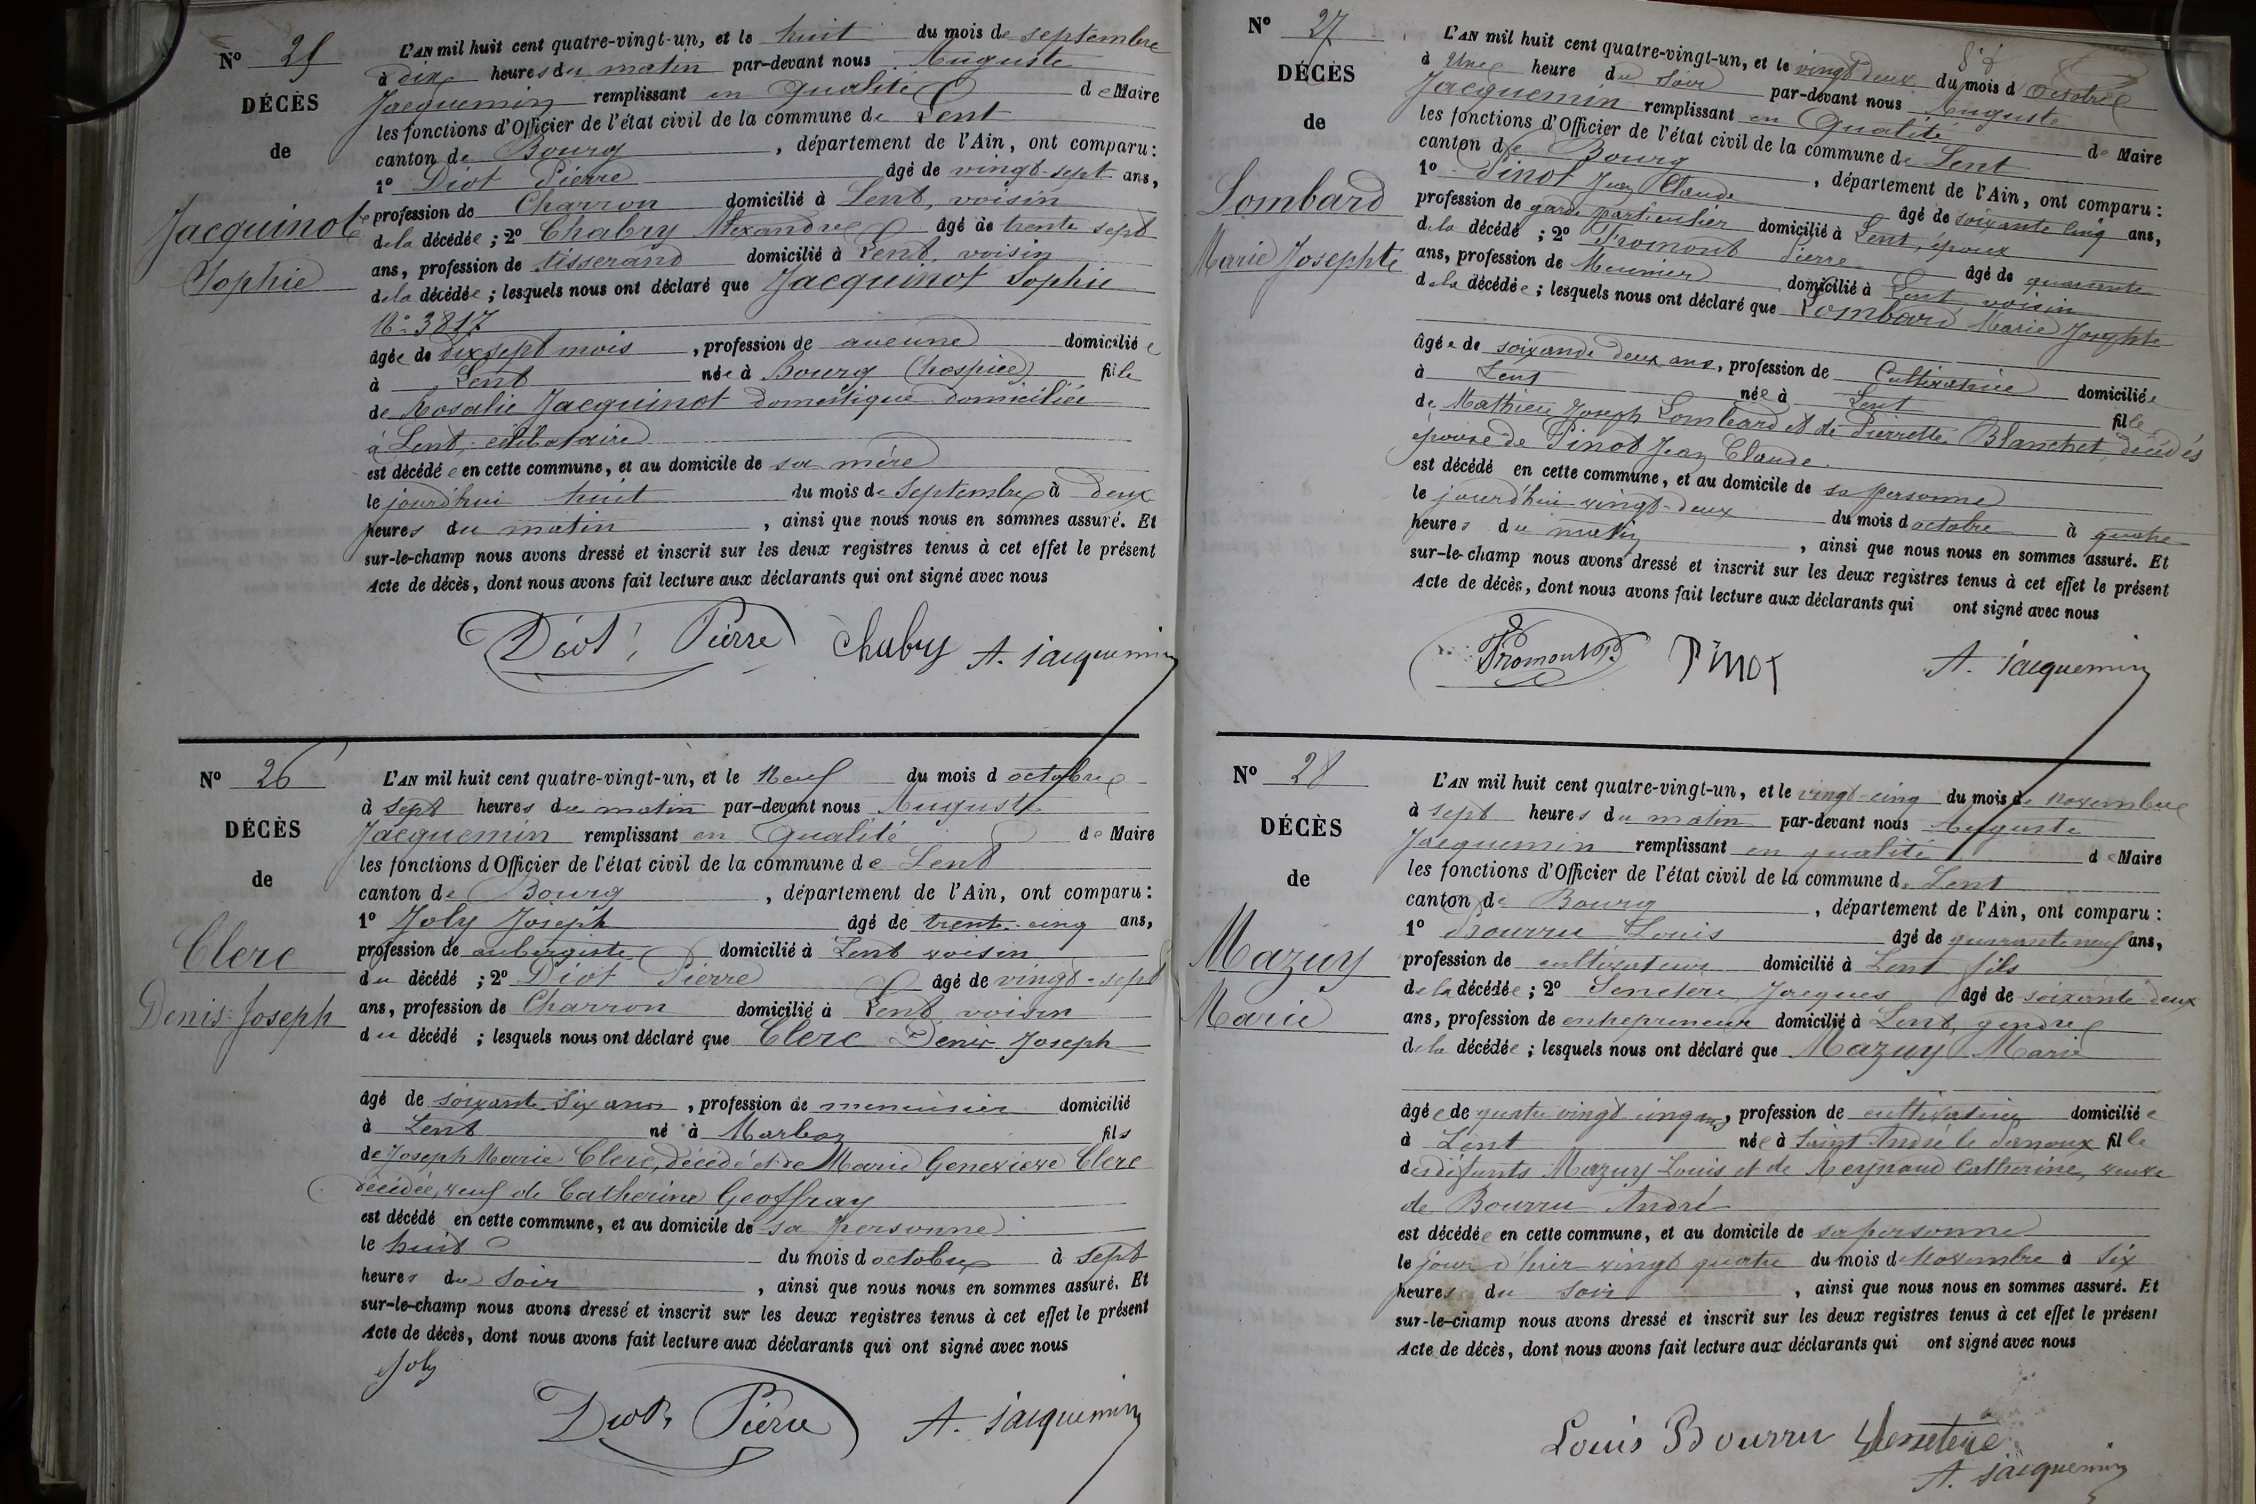 N° 25
DÉCÈS
de
Jacquinot
Sophie
L'AN mil huit cent quatre-vingt-un, et le huit du mois de septembre
à dix heures du matin par-devant nous Auguste
Jacquemin remplissant en qualité de Maire
les fonctions d'Officier de l'état civil de la commune de Lent
canton de Bourg, département de l'Ain, ont comparu :
1° Diot Pierre âgé de vingt-sept ans,
profession de Charron domicilié à Lent, voisin
de la décédée ; 2° Chabry Alexandre âgé de trente sept
ans, profession de tisserand domicilié à Lent, voisin
de la décédée ; lesquels nous ont déclaré que Jacquinot Sophie
N° 3817
âgée de dix sept mois, profession de aucune domiciliée
à Lent née à Bourg (hospice) fille
de Rosalie Jacquinot domestique domiciliée
à Lent, célibataire
est décédée en cette commune, et au domicile de sa mère
le jourd'hui huit du mois de Septembre à deux
heures du matin, ainsi que nous nous en sommes assuré. Et
sur-le-champ nous avons dressé et inscrit sur les deux registres tenus à cet effet le présent
Acte de décès, dont nous avons fait lecture aux déclarants qui ont signé avec nous
Diot Pierre Chabry A. Jacquemin
N° 26
DÉCÈS
de
Clerc
Denis-Joseph
L'AN mil huit cent quatre-vingt-un, et le Neuf du mois d octobre
à sept heures du matin par-devant nous Auguste
Jacquemin remplissant en qualité de Maire
les fonctions d'Officier de l'état civil de la commune de Lent
canton de Bourg, département de l'Ain, ont comparu :
1° Joly Joseph âgé de trente-cinq ans,
profession de aubergiste domicilié à Lent voisin
du décédé ; 2° Diot Pierre âgé de vingt-sept
ans, profession de Charron domicilié à Lent, voisin
du décédé ; lesquels nous ont déclaré que Clerc Denis Joseph
âgé de soixante-six ans, profession de menuisier domicilié
à Lent né à Marboz fils
de Joseph Marie Clerc, décédé et de Marie Genevieve Clerc
décédée, veuf de Catherine Geoffray
est décédé en cette commune, et au domicile de sa personne
le huit du mois d octobre à sept
heures du soir, ainsi que nous nous en sommes assuré. Et
sur-le-champ nous avons dressé et inscrit sur les deux registres tenus à cet effet le présent
Acte de décès, dont nous avons fait lecture aux déclarants qui ont signé avec nous
Joly
Diot Pierre A. Jacquemin
N° 27
DÉCÈS
de
Lombard
Marie Josephte
L'AN mil huit cent quatre-vingt-un, et le vingt deux du mois d'octobre
à Une heure du Soir par-devant nous Auguste
Jacquemin remplissant en Qualité de Maire
les fonctions d'Officier de l'état civil de la commune de Lent
canton de Bourg, département de l'Ain, ont comparu :
1° Pinot Jean Claude âgé de soixante cinq ans,
profession de garde particulier domicilié à Lent, époux
de la décédé ; 2° Fromont Pierre âgé de quarante
ans, profession de Meunier domicilié à Lent, voisin
de la décédée ; lesquels nous ont déclaré que Lombard Marie Josephte
âgée de soixante deux ans, profession de Cultivatrice domiciliée
à Lent née à Lent fille
de Mathieu Joseph Lombard et de Pierrette Blanchet, décédés
épouse de Pinot Jean Claude
est décédé en cette commune, et au domicile de sa personne
le jourd'hui vingt-deux du mois d octobre à quatre
heures du matin, ainsi que nous nous en sommes assuré. Et
sur-le-champ nous avons dressé et inscrit sur les deux registres tenus à cet effet le présent
Acte de décès, dont nous avons fait lecture aux déclarants qui ont signé avec nous
Fromont P. Pinot A. Jacquemin
N° 28
DÉCÈS
de
Mazuy
Marie
L'AN mil huit cent quatre-vingt-un, et le vingt-cinq du mois de novembre
à sept heures du matin par-devant nous Auguste
Jacquemin remplissant en qualité de Maire
les fonctions d'Officier de l'état civil de la commune de Lent
canton de Bourg, département de l'Ain, ont comparu :
1° Bourru Louis âgé de quarante neuf ans,
profession de cultivateur domicilié à Lent fils
de la décédée ; 2° Senetere Jacques âgé de soixante-deux
ans, profession de entrepreneur domicilié à Lent, gendre
de la décédée ; lesquels nous ont déclaré que Mazuy Marie
âgée de quatre vingt cinq ans, profession de cultivatrice domiciliée
à Lent née à Saint André le Panoux fille
des défunts Mazuy Louis et de Reynaud Catherine, veuve
de Bourru André
est décédée en cette commune, et au domicile de sa personne
le jour d'hier vingt quatre du mois de Novembre à Six
heures du soir, ainsi que nous nous en sommes assuré. Et
sur-le-champ nous avons dressé et inscrit sur les deux registres tenus à cet effet le présent
Acte de décès, dont nous avons fait lecture aux déclarants qui ont signé avec nous
Louis Bourru Senetere
A. Jacquemin